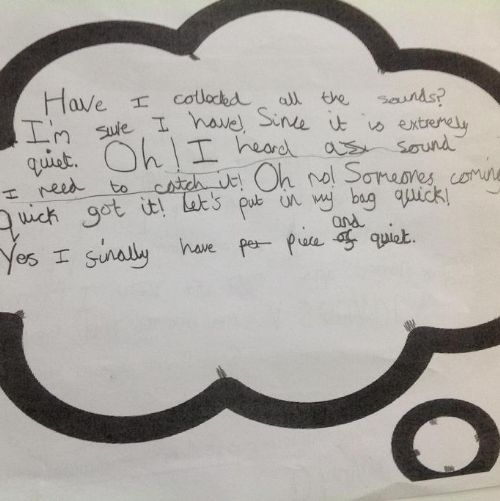 Have I collocted all the sounds?
I'm sure I have! Since it is extremely
quiet. Oh! I heard a sound
I need to catch it! Oh no! Someones coming
Quick got it! Let's put in my bag quick!
Yes I finally have piece and quiet.